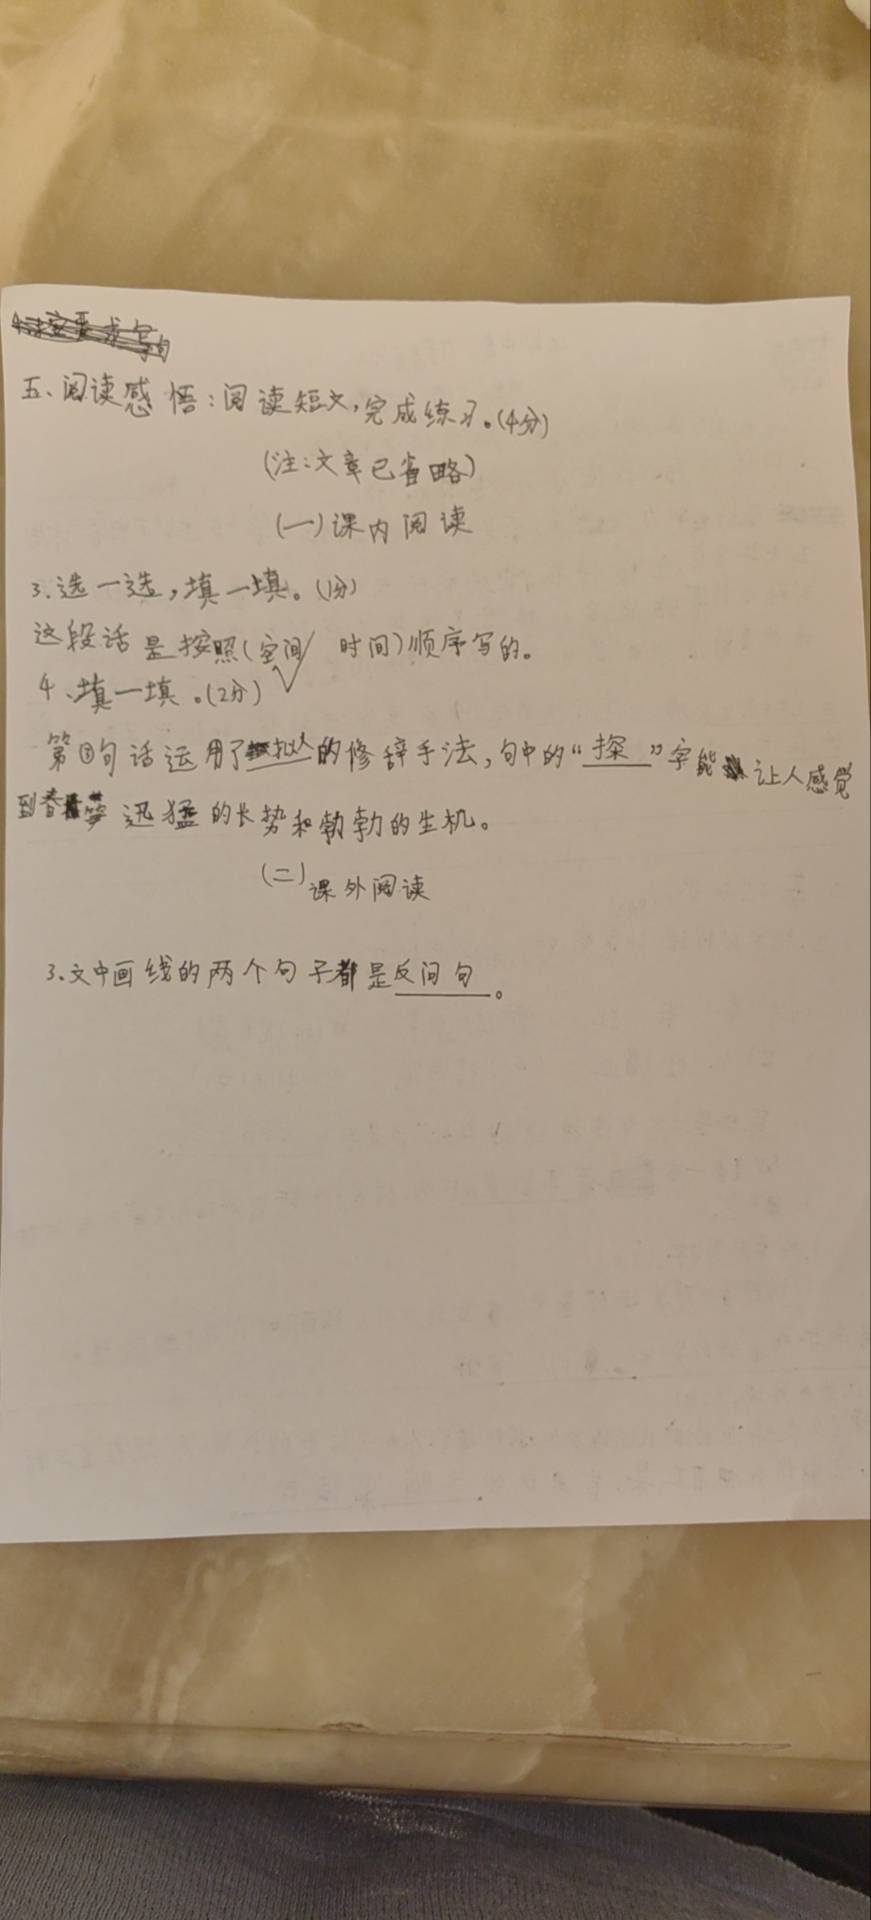 五、阅读感悟:阅读短文,完成练习。(4分)
(注:文章已省略)
(一)课内阅读
3.选一选,填一填。(1分)
这段话是按照(空间√ 时间)顺序写的。
4、填一填。(2分)
第③句话运用了拟人的修辞手法,句中的“探”字能让人感觉
到春笋迅猛的长势和勃勃的生机。
(二)课外阅读
3、文中画线的两个句子都是反问句。